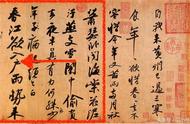 自我来黄州已過三寒
食年年欲惜春春去不
容惜今年又苦雨兩月秋
蕭瑟卧聞海棠花泥
汙燕支雪闇中偷負
去夜半真有力何殊少
年子病起頭已白
春江欲入戶雨勢來